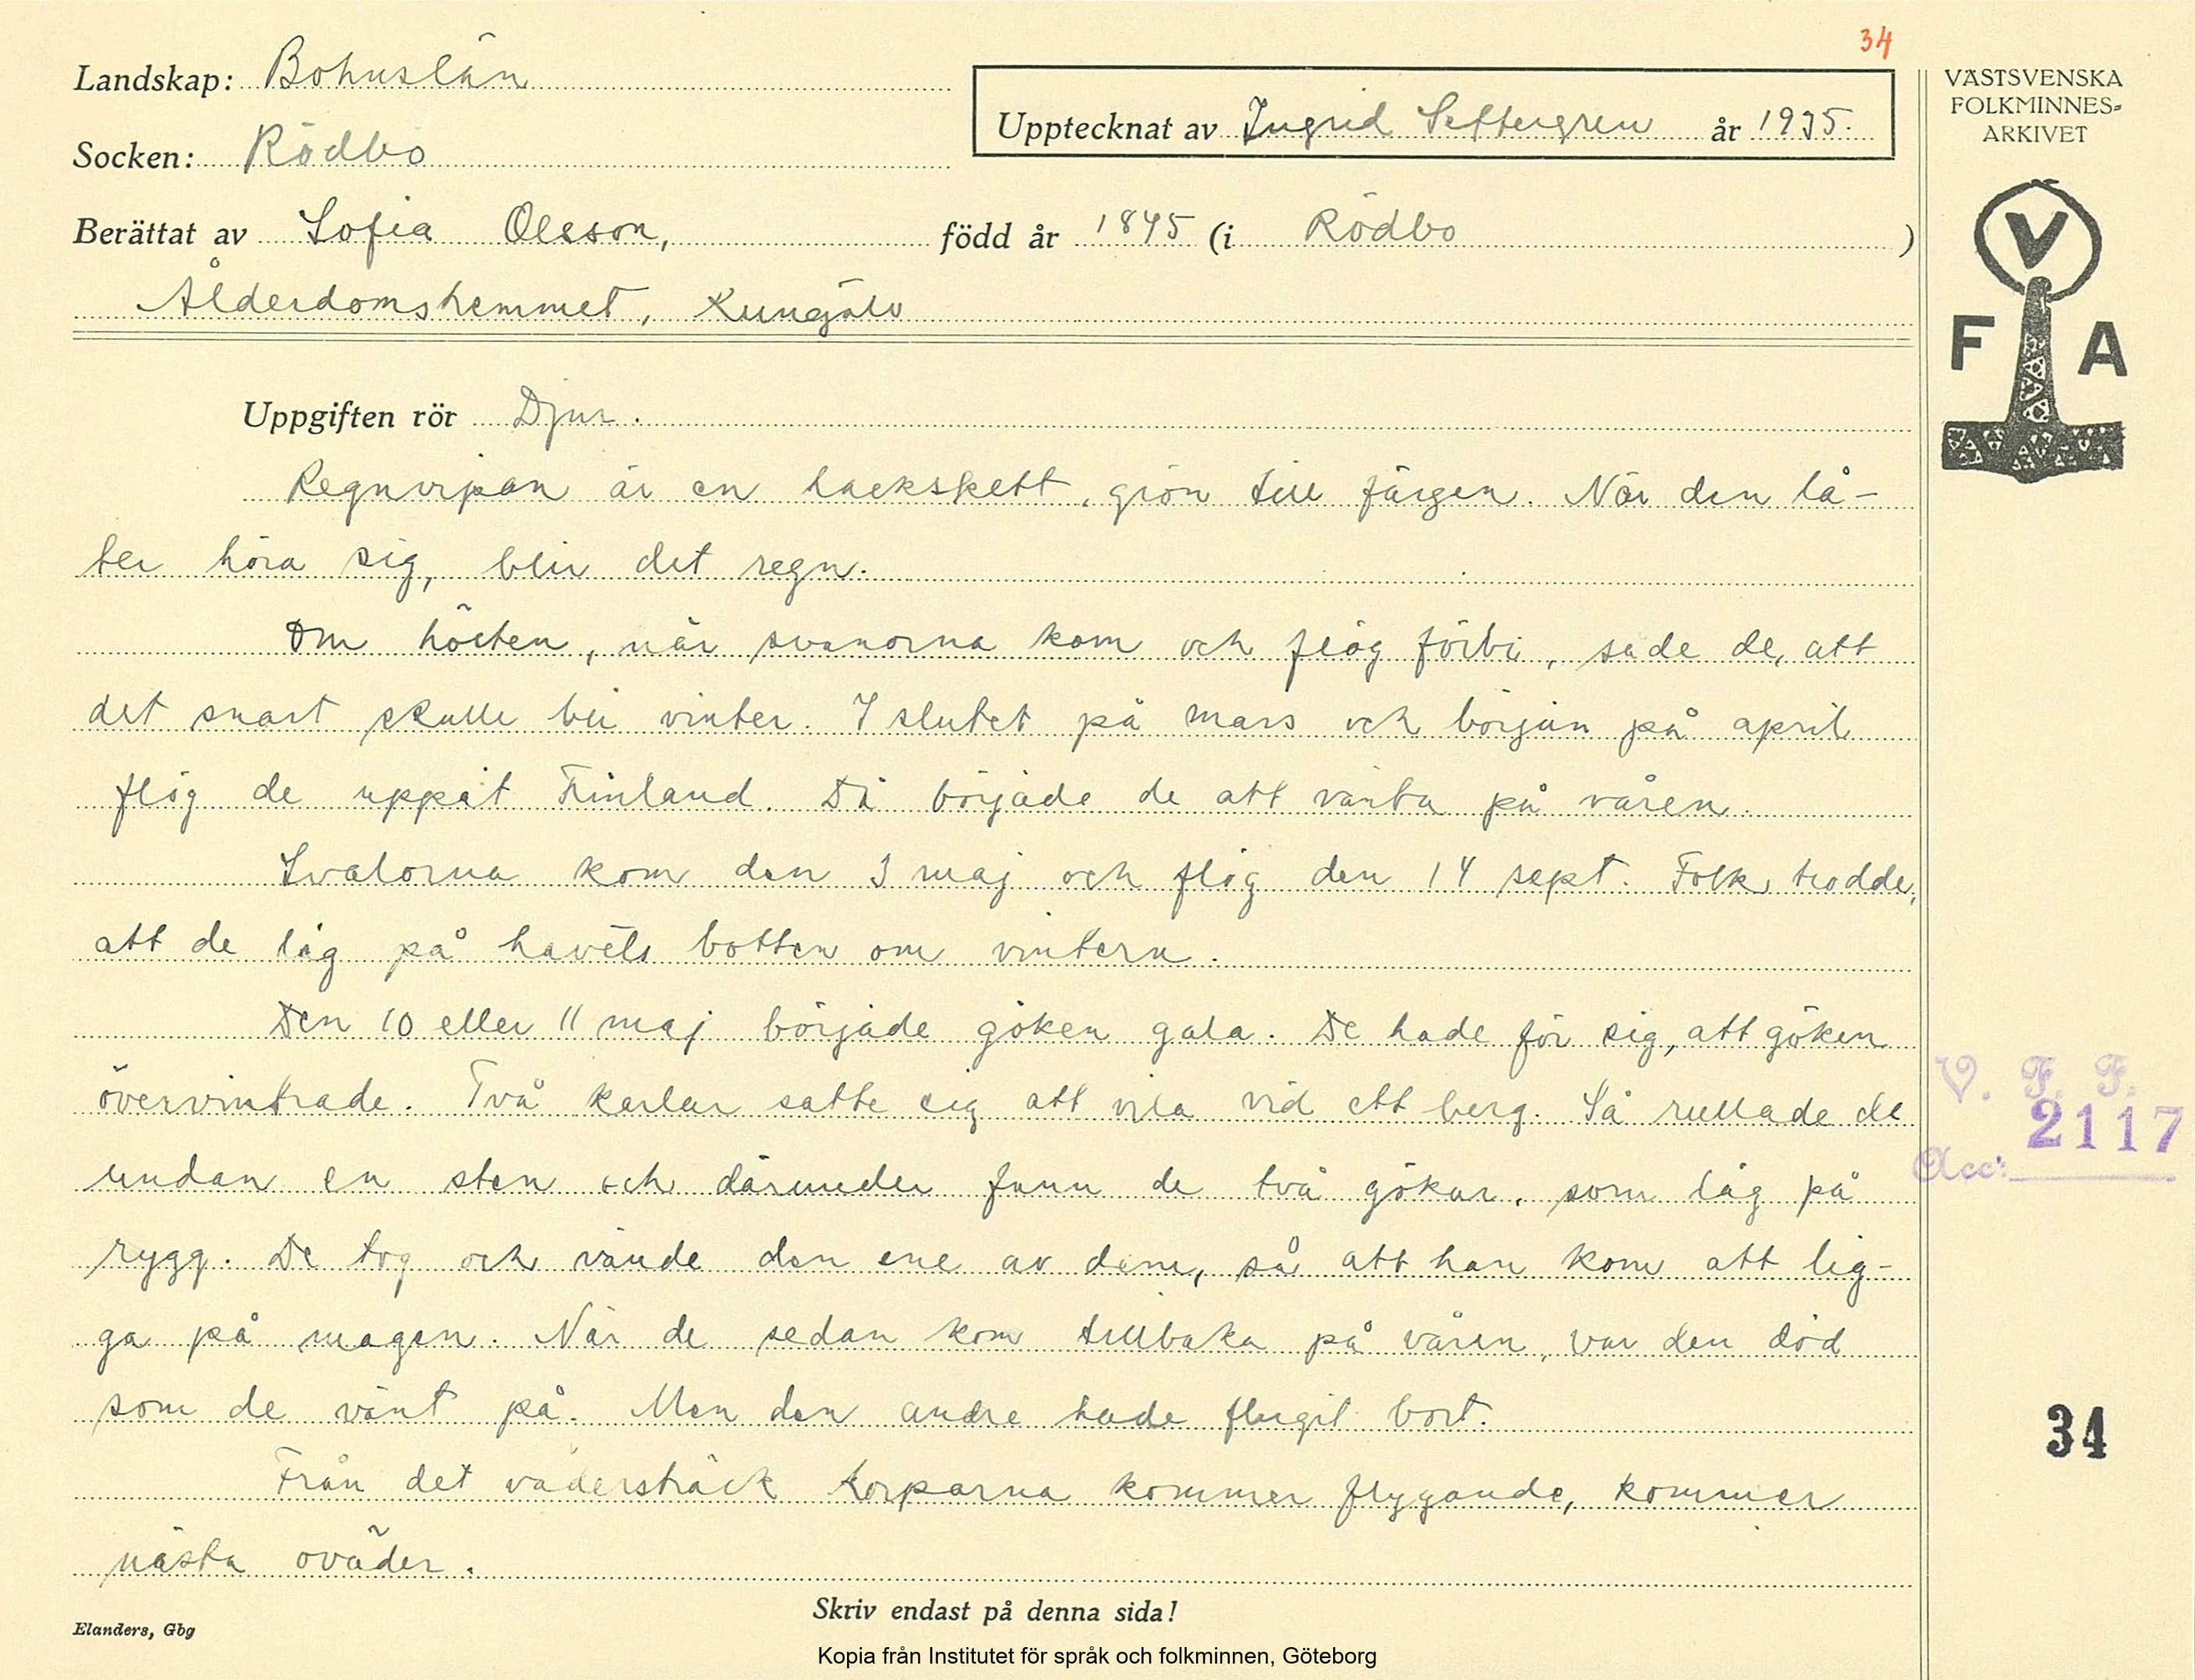 34
Landskap: Bohuslän
Upptecknat av Ingrid Settergren år 1935.
Socken: Rödbo
Berättat av Sofia Olsson, född år 1845 (i Rödbo )
Ålderdomshemmet, Kungälv
VÄSTSVENSKA
FOLKMINNES-
ARKIVET
V
F A
Uppgiften rör Djur.
Regnvipan är en hackspett, grön till färgen. När den lå-
ter höra sig, blir det regn.
Om hösten, när svanorna kom och flög förbi, sade de, att
det snart skulle bli vinter. I slutet på mars och början på april
flög de uppåt Finland. Då började de att vänta på våren.
Svalorna kom den 3 maj och flög den 14 sept. Folk trodde,
att de låg på havets botten om vintern.
Den 10 eller 11 maj började göken gala. De hade för sig, att göken
övervintrade. Två karlar satte sig att vila vid ett berg. Så rullade de
undan en sten och därunder fann de två gökar, som låg på
rygg. De tog och vände den ene av dem, så att han kom att lig-
ga på magen. När de sedan kom tillbaka på våren, var den död
som de vänt på. Men den andre hade flugit bort.
Från det vädersträck korparna kommer flygande, kommer
nästa oväder.
V. F. F.
Acc: 2117
34
Skriv endast på denna sida!
Elanders, Gbg
Kopia från Institutet för språk och folkminnen, Göteborg